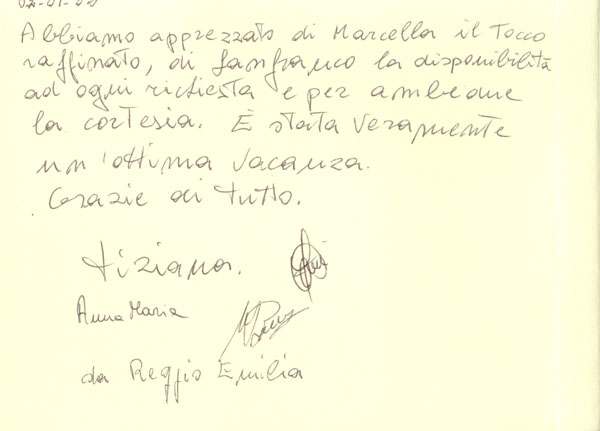 Abbiamo apprezzato di Marcella il Tocco
raffinato, di Lanfranco la disponibilità
ad ogni richiesta e per ambedue
la cortesia. È stata veramente
un'ottima vacanza.
Grazie di tutto.
tiziana.
Anna Maria
da Reggio Emilia